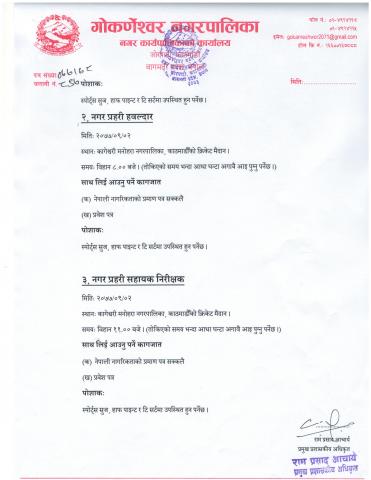 गोकर्णेश्वर नगरपालिका
नगर कार्यपालिकाको कार्यालय
फोन नं.:
इमेल: gokarneshwor2071@gmail.com
पत्र संख्या:
चलानी नं.:
मिति:
पोशाकः
स्पोर्ट्स सुज, हाफ पाइन्ट र टि सर्टमा उपस्थित हुन पर्नेछ ।
२. नगर प्रहरी हवल्दार
मितिः २०७७/०९/०२
स्थानः कागेश्वरी मनोहरा नगरपालिका, काठमाडौंको क्रिकेट मैदान ।
समयः विहान ८.०० बजे । (तोकिएको समय भन्दा आधा घन्टा अगावै आइ पुग्नु पर्नेछ ।)
साथ लिई आउनु पर्ने कागजात
(क) नेपाली नागरिकताको प्रमाण पत्र सक्कलै
(ख) प्रवेश पत्र
पोशाकः
स्पोर्ट्स सुज, हाफ पाइन्ट र टि सर्टमा उपस्थित हुन पर्नेछ ।
३. नगर प्रहरी सहायक निरीक्षक
मितिः २०७७/०९/०२
स्थानः कागेश्वरी मनोहरा नगरपालिका, काठमाडौंको क्रिकेट मैदान ।
समयः विहान ११.०० बजे । (तोकिएको समय भन्दा आधा घन्टा अगावै आइ पुग्नु पर्नेछ ।)
साथ लिई आउनु पर्ने कागजात
(क) नेपाली नागरिकताको प्रमाण पत्र सक्कलै
(ख) प्रवेश पत्र
पोशाकः
स्पोर्ट्स सुज, हाफ पाइन्ट र टि सर्टमा उपस्थित हुन पर्नेछ ।
राम प्रसाद आचार्य
प्रमुख प्रशासकीय अधिकृत
राम प्रसाद आचार्य
प्रमुख प्रशासकीय अधिकृत